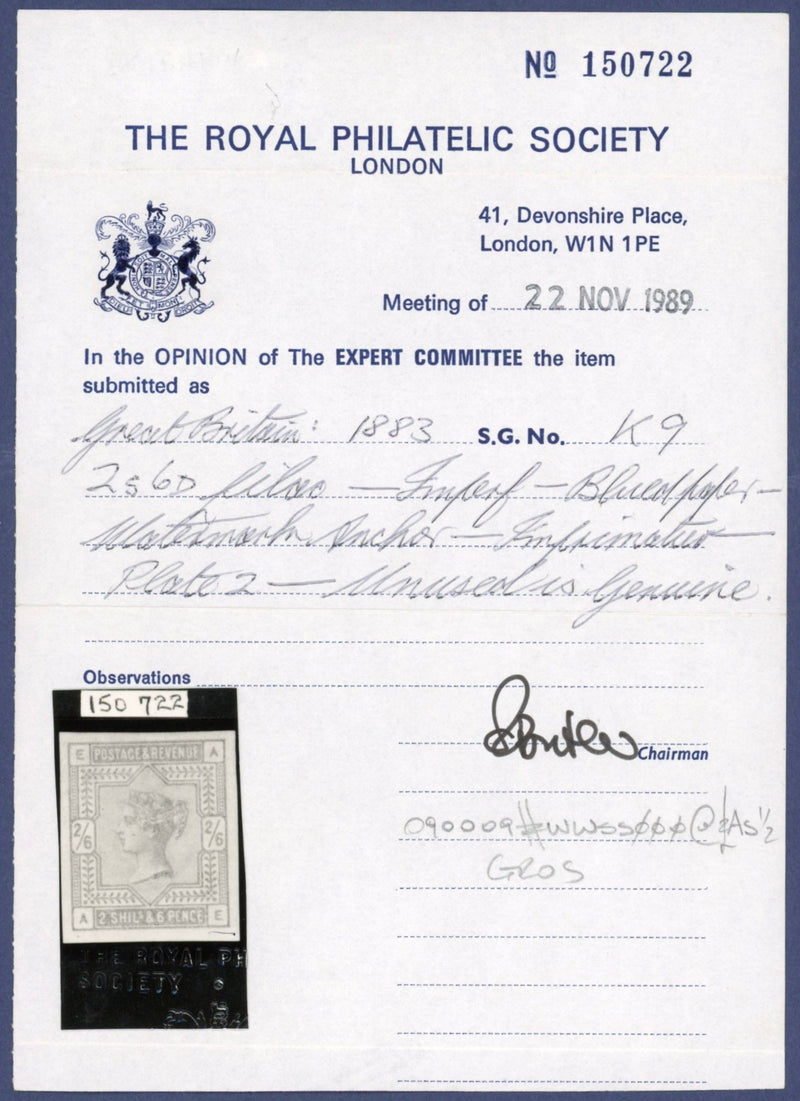 No 150722
THE ROYAL PHILATELIC SOCIETY
LONDON
41, Devonshire Place,
London, W1N 1PE
Meeting of 22 NOV 1989
In the OPINION of The EXPERT COMMITTEE the item
submitted as
Great Britain: 1883 S.G. No. K9
2s 6D lilac — Imperf — Blued paper —
Watermark Anchor — Imprimatur —
Plate 2 — Unused is Genuine.
Observations
150 722
Chairman
E POSTAGE & REVENUE A
2/6 2/6
A 2 SHILS & 6 PENCE E
090009#WWSS
GROS
THE ROYAL PH
SOCIETY